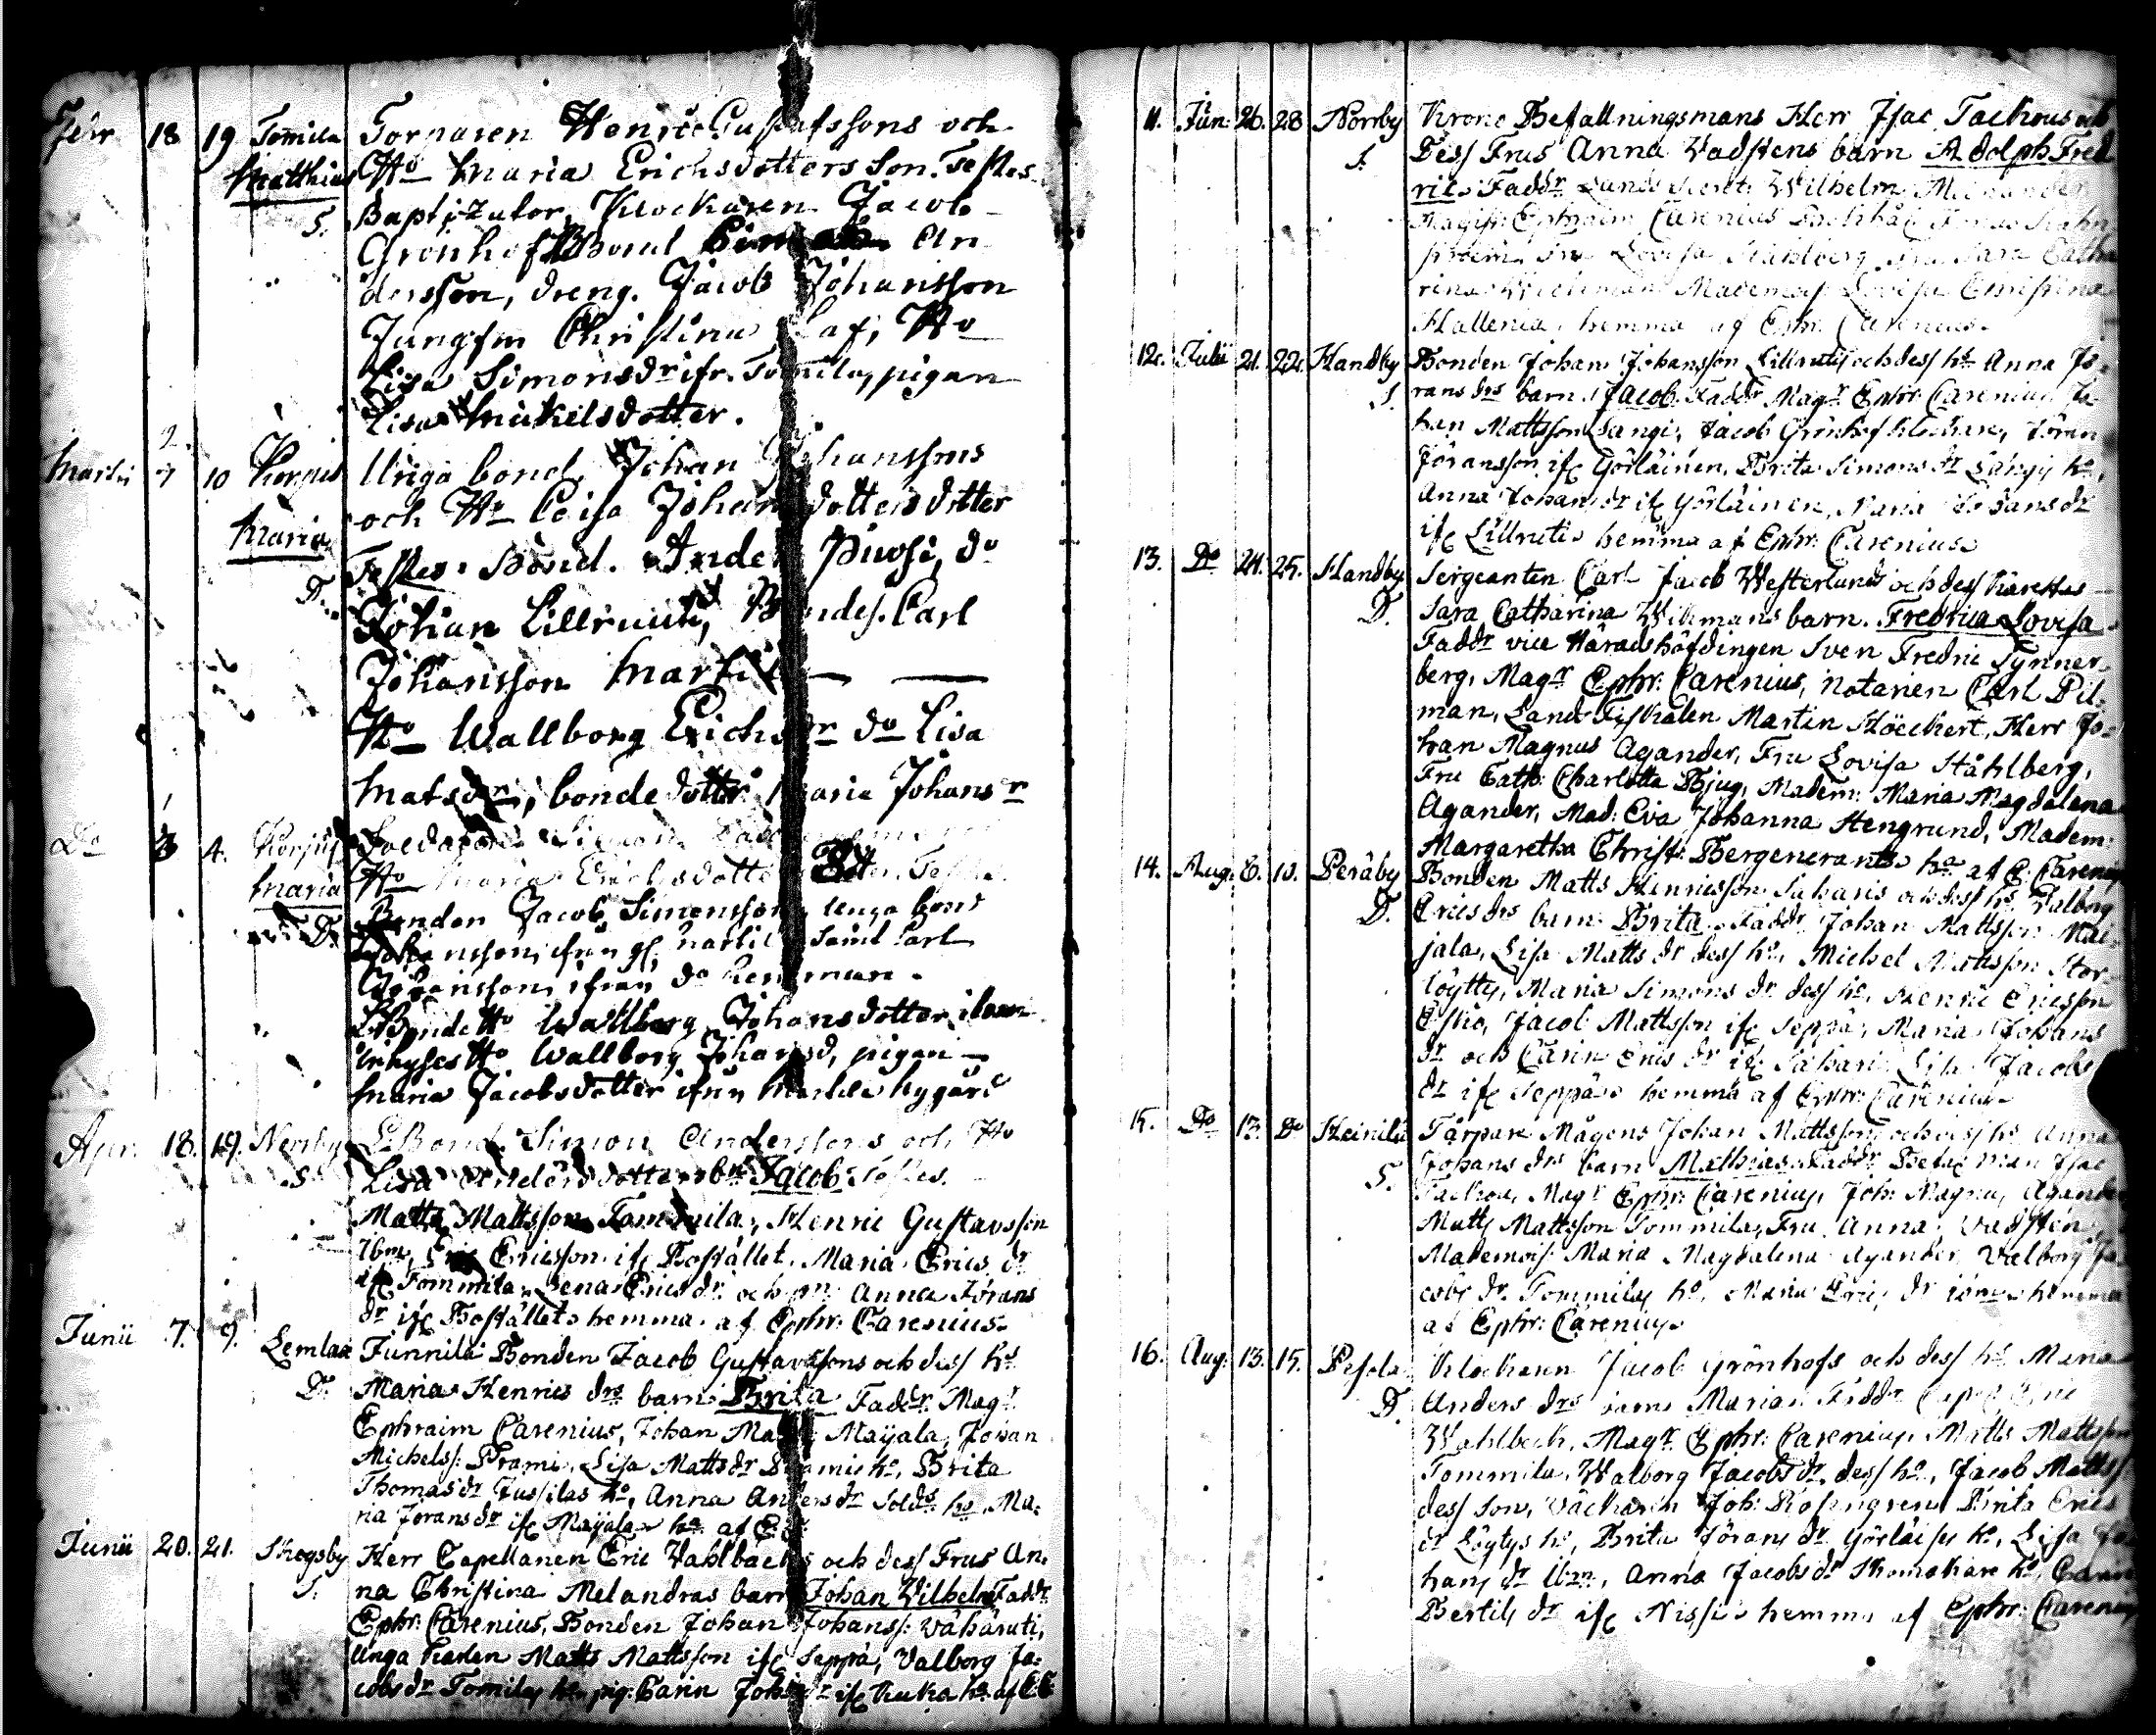 Febr 18 19 Tomila Torparen Henric Gustafssons och
Matthias Ho Maria Erichsdotters Son. Testes
S. Baptizator, Klockaren Jacob
Grönhof Bond An
dersson, dreng. Jacob Johansson
Jungfrn Christina Ho
Lisa Simonsdr ifr. Tomila, pigan
Lisa Mickelsdotter.
Martii 7 10 Korpis Unga bond. Johan Johanssons
och Ho Caisa Johans dotters dotter
Maria Testes. Bond. Anders do
D. Johan Lillruuti, Bondes. Carl
Johansson Martila
Ho Wallborg Erichsdr do Lisa
Matsdr, bonde dotter Maria Johansdr
Do 3 4. Korpis Soldatens Simon
Maria Ho Maria Erichsdotters Dotter. Testes
D. Bonden Jacob Simonsson, unga bond
Johansson, ifrån Martila Samt Carl
Johansson, ifrån do
Bonde Ho Wallborg Johansdotter ibm
Inhyses Ho Wallborg Johansd, pigan
Maria Jacobsdotter ifrån
Apr. 18. 19. Norrby Bond. Simon Anderssons och Ho
S. Lisa Andersdotters bn Jacob Testes.
Matts Mattsson Tommila, Henric Gustavsson
ibm, Eric Ericsson ifr Bostället. Maria Erics dr
ifr Tommila, Lena Erics dr och Anna Jörans
dr ifr Bostället hemma af Ephr: Carenius.
Junii 7. 9. Lemlax Junnila Bonden Jacob Gustavssons och dess ho
D. Maria Henrics drs barn Brita Faddr. Magr
Ephraim Carenius, Johan Matts Maijala, Johan
Michelss: Prami, Lisa Matts dr Pramis ho, Brita
Thomas dr Jussilas ho, Anna Anders dr Solds ho, Ma-
ria Jörans dr ifr Maijala ha af E: C:
Junii 20. 21. Skogsby Herr Capellanen Eric Wahlbäcks och dess Frus An-
S. na Christina Melandras barn Johan Vilhelm Faddr
Ephr: Carenius, Bonden Johan Johanss: Vähäruti,
Unga Karlen Matts Mattsson ifr Seppä, Valborg Ja-
cobs dr Tomilas ho, pig: Carin Johs dr ifr Kuka ha af E:C
11. Jun: 26. 28 Norrby Krono Befallningsmans Herr Isac Tackous och
S. Dess Frus Anna Vadstens barn Adolph Fred
ric Faddr Lands Secret: Wilhelm
Magist: Ephraim Carenius
Fru Lovisa Ståhlberg, Fru Sara Catha
rina Wichman Mademois Lovisa Christina
Hallenia, hemma af Ephr: Carenius.
12. Julii 21. 22. Handby Bonden Johan Johansson Lillrutis och dess ho Anna Jö-
S. rans drs barn Jacob Faddr Magr Ephr: Carenius, Jo-
han Mattsson Langi, Jacob Grönhof klockare, Jöran
Jöransson ifr Görläinen, Brita Simons dr Langis ho,
Anna Johans dr ifr Görläinen, Maria Johans dr
ifr Lillruti hemma af Ephr: Carenius
13. Do 24. 25. Handby Sergeanten Carl Jacob Westerlunds och dess Käre Hus
D. Sara Catharina Wikmans barn. Fredrica Lovisa
Faddr vice Häradshöfdingen Sven Fredric Synner-
berg, Magr Ephr: Carenius, Notarien Carl Pil-
man, Lands Fiskalen Martin Höckert, Herr Jo-
han Magnus Agander, Fru Lovisa Ståhlberg,
Fru Cath: Charlotta Bjug, Madem: Maria Magdalena
Agander, Mad: Eva Johanna Stengrund, Madem:
Margaretha Christ: Bergenerants ha af E: Carenius
14. Aug: 6. 10. Peräby Bonden Matts Henricsson Saharis och dess ho Valborg
D. Erics drs barn Brita Faddr Johan Mattsson Mai-
jala, Lisa Matts dr dess ho, Michel Mattsson Stor-
löytty, Maria Simons dr dess ho, Henric Ericsson
Eskio, Jacob Mattsson ifr Seppä, Maria Johans
dr och Carin Erics dr ifr Sahari Lisa Jacobs
dr ifr Seppä hemma af Ephr: Carenius
15. Do 13. Do Heinilä Torpare Mågens Johan Mattssons och dess ho Anna
S. Johans drs barn Mathias. Faddr Befalnman Isac
Tackou, Magr Ephr: Carenius, Joh: Magnus Agander
Matts Mattsson Tommila, Fru Anna Vadsten
Mademois: Maria Magdalena Agander, Valborg Ja-
cobs dr Tommilas ho, Maria Erics dr ibm hemma
af Ephr: Carenius.
16. Aug: 13. 15. Pesola Klockaren Jacob Grönhofs och dess ho Maria
D. Anders drs barn Maria. Faddr Eric
Wahlbeck, Magr Ephr: Carenius, Matts Mattsson
Tommila, Walborg Jacobs dr dess ho, Jacob Mattss
dess son, Joh: Rosengren Brita Erics
dr Löytys ho, Brita Jörans dr Görläises ho, Lisa Jo-
hans dr ibm, Anna Jacobs dr Skomakare ho, Carin
Bertils dr ifr Nissi hemma af Ephr: Carenius